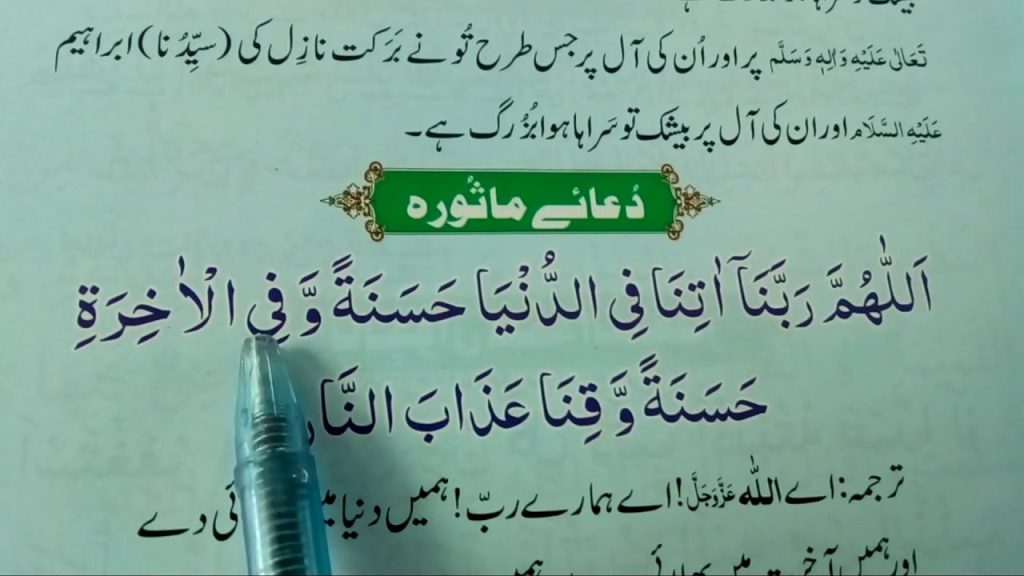 تَعَالٰی عَلَیْہِ وَاٰلِہٖ وَسَلَّم پر اور اُن کی آل پر جس طرح تُو نے بَرَکت نازِل کی (سیِّدُنا) ابراہیم
عَلَیْہِ السَّلَام اور ان کی آل پر بیشک تو سَراہا ہوا بُزُرگ ہے۔
دُعائے ماثُورہ
اَللّٰھُمَّ رَبَّنَآ اٰتِنَا فِی الدُّنْیَا حَسَنَةً وَّ فِی الْاٰخِرَةِ
حَسَنَةً وَّ قِنَا عَذَابَ النَّار
ترجمہ: اے اللہ عَزَّوَجَلَّ! اے ہمارے ربّ! ہمیں دنیا دے
اور ہمیں